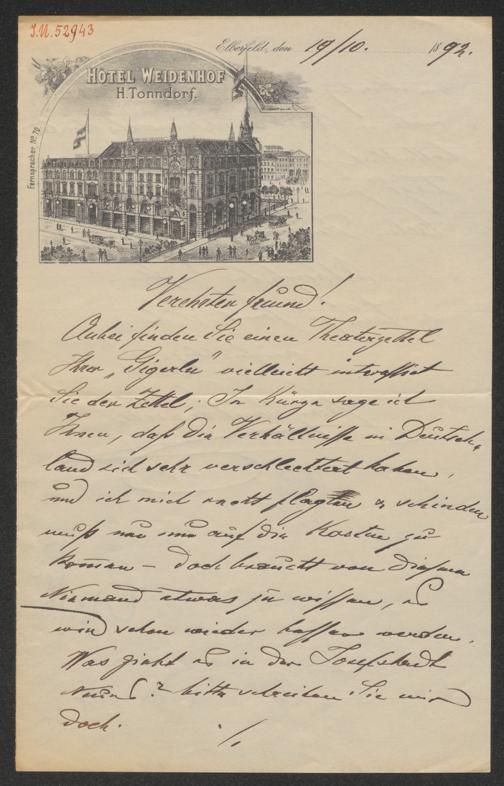 J.N. 52943
Elberfeld, den 19/10. 1892.
HOTEL WEIDENHOF
H. Tonndorf.
Fernsprecher No. 70
Verehrter freund!
Anbei finden Sie einen Theaterzettel
Ihrer „Gigerln" vielleicht interessirt
Sie der Zettel; In Kürze sage ich
Ihnen, daß die Verhältnisse in Deutsch-
land sich sehr verschlechtert haben,
und ich mich recht plagen & schinden
muß um nur auf die Kosten zu
kommen – doch braucht von diesem
Niemand etwas zu wissen, es
wird schon wieder besser werden.
Was giebt es in der Josefstadt
Neues? bitte schreiben Sie mir
doch.
./.